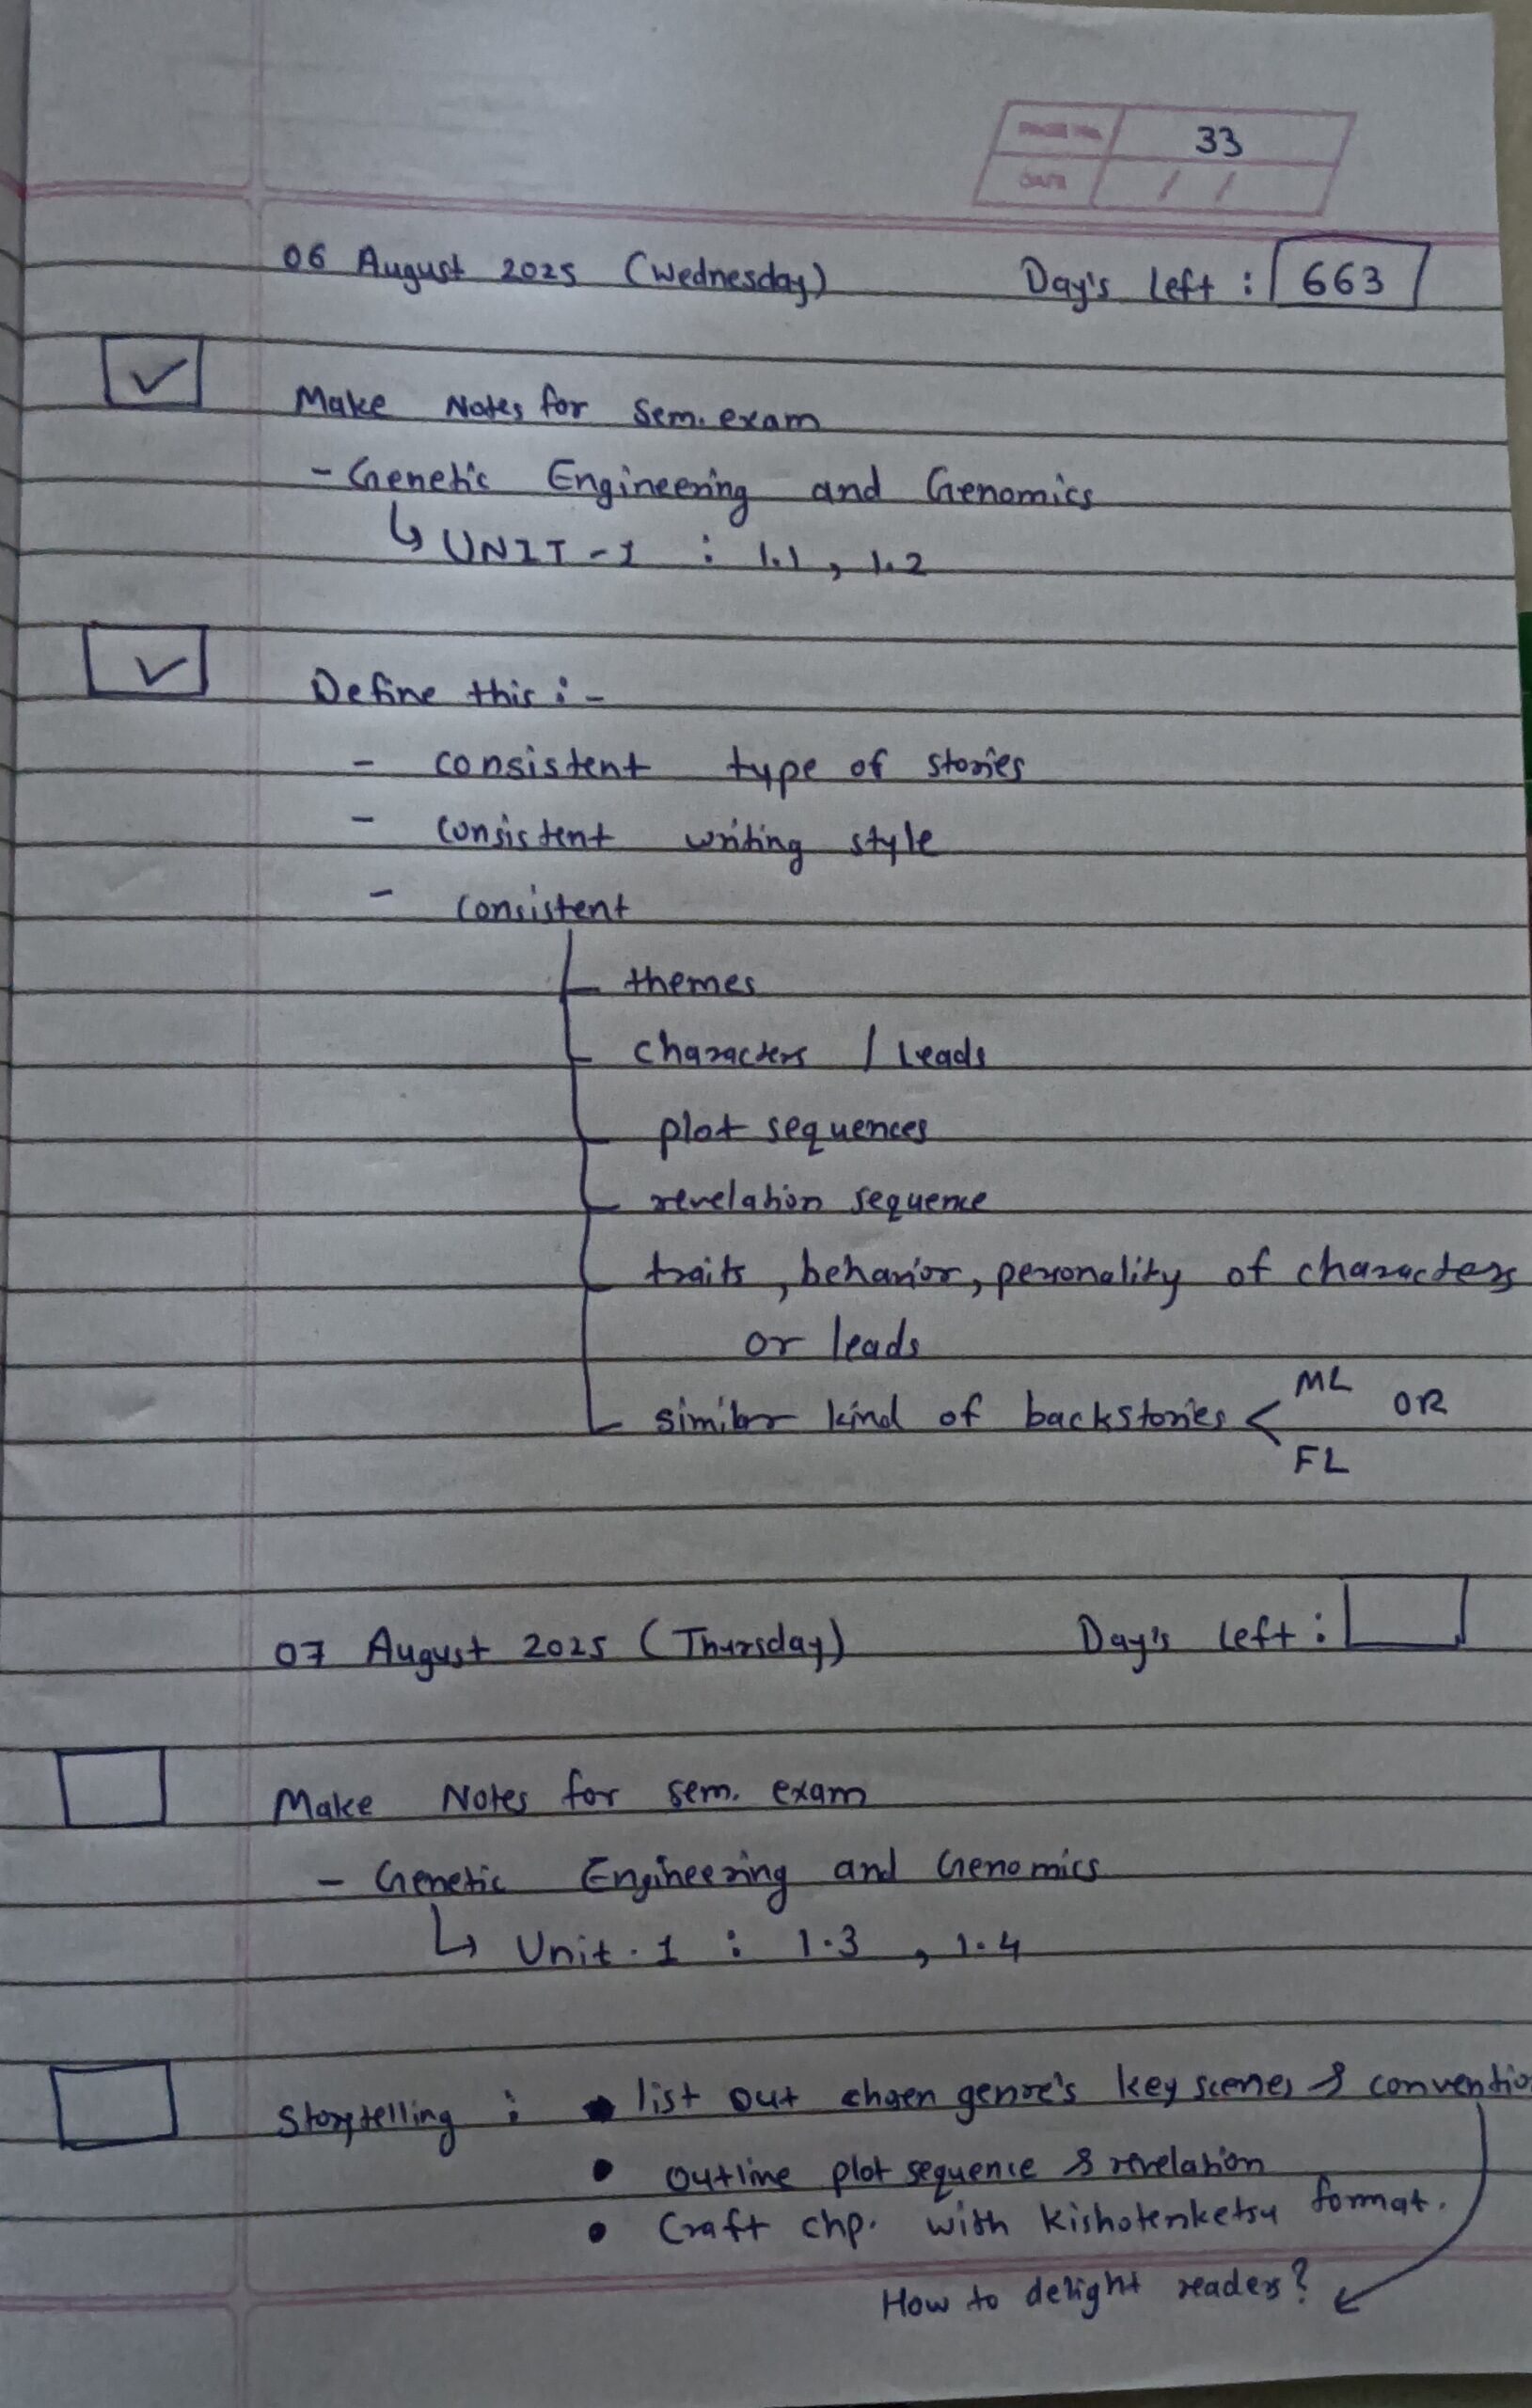 PAGE No. 33
DATE / /
06 August 2025 (Wednesday) Day's left : 663
Make Notes for Sem. exam
- Genetic Engineering and Genomics
↳ UNIT-1 : 1.1, 1.2
Define this :-
- consistent type of stories
- consistent writing style
- consistent
themes
characters / Leads
plot sequences
revelation sequence
traits, behavior, personality of characters
or leads
similar kind of backstories < ML OR
FL
07 August 2025 (Thursday) Day's left :
Make Notes for sem. exam
- Genetic Engineering and Genomics
↳ Unit-1 : 1.3, 1.4
Storytelling : • list out chosen genre's key scenes & conventio
• outline plot sequence & revelation
• Craft chp. with Kishotenketsu format.
How to delight readers?